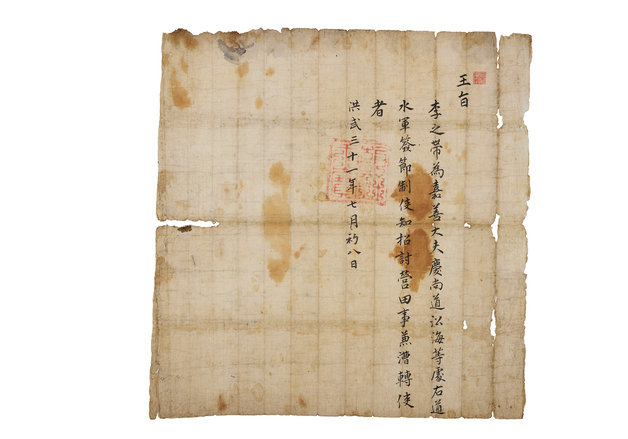 王旨
李之帶為嘉善大夫慶尚道沿海等處右道
水軍僉節制使知招討營田事兼漕轉使
者
洪武三十一年七月初八日